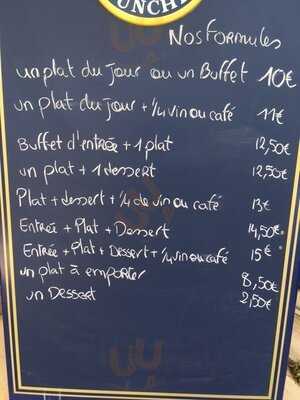 UNCH
Nos Formules
un plat du Jour ou un Buffet 10€
un plat du Jour + 1/4 vin ou café 11€
Buffet d'entrée + 1 plat 12,50€
un plat + 1 dessert 12,50€
Plat + dessert + 1/4 de vin ou café 13€
Entrée + Plat + Dessert 14,50€
Entrée + Plat + Dessert + 1/4 vin ou café 15€
un plat à emporter 8,50€
un Dessert 2,50€